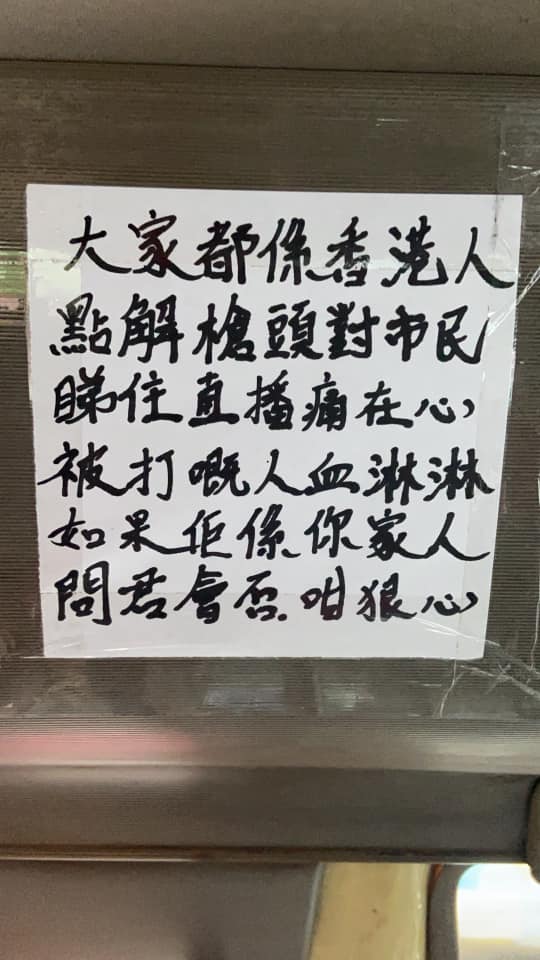 大家都係香港人
點解槍頭對市民
睇住直播痛在心
被打嘅人血淋淋
如果佢係你家人
問君會否咁狠心